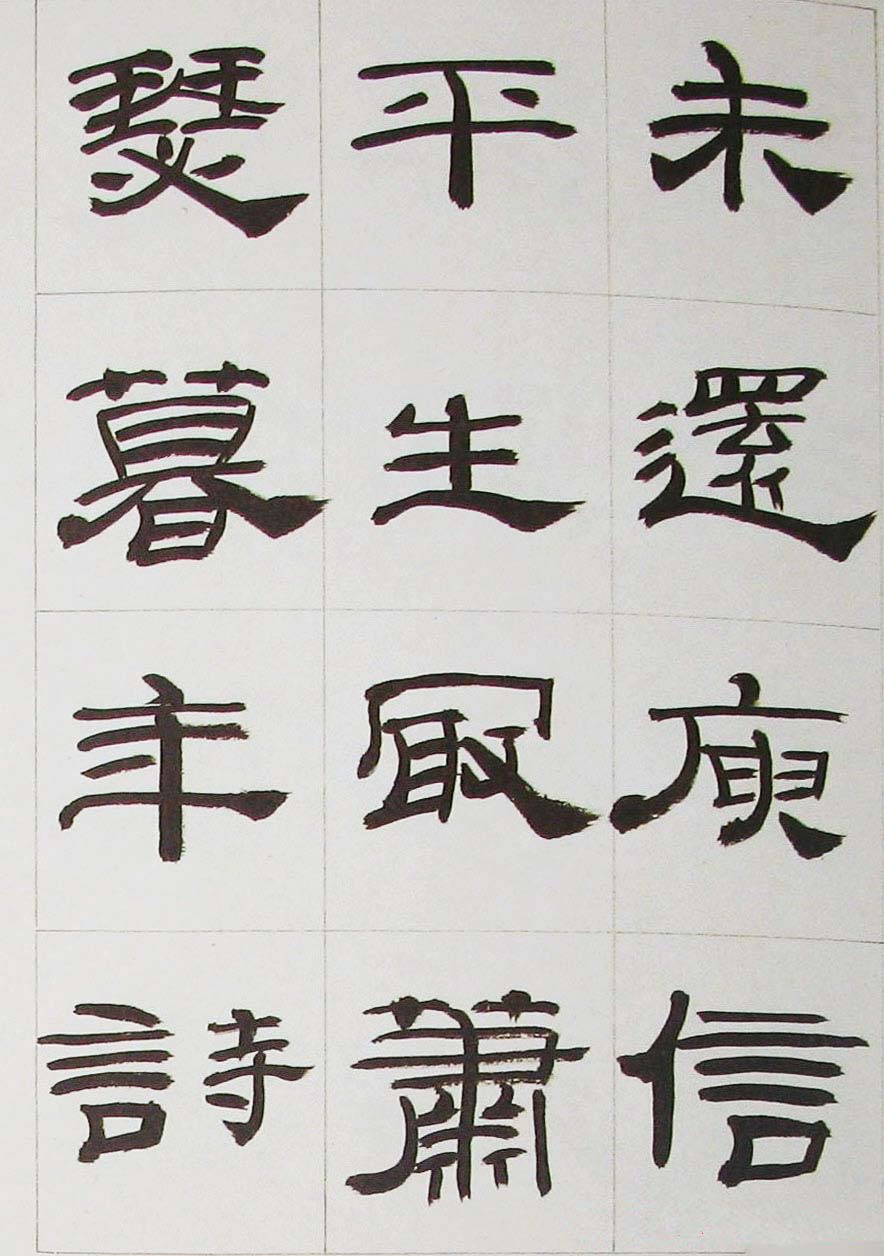 未還庾信
平生冣蕭
瑟暮年詩